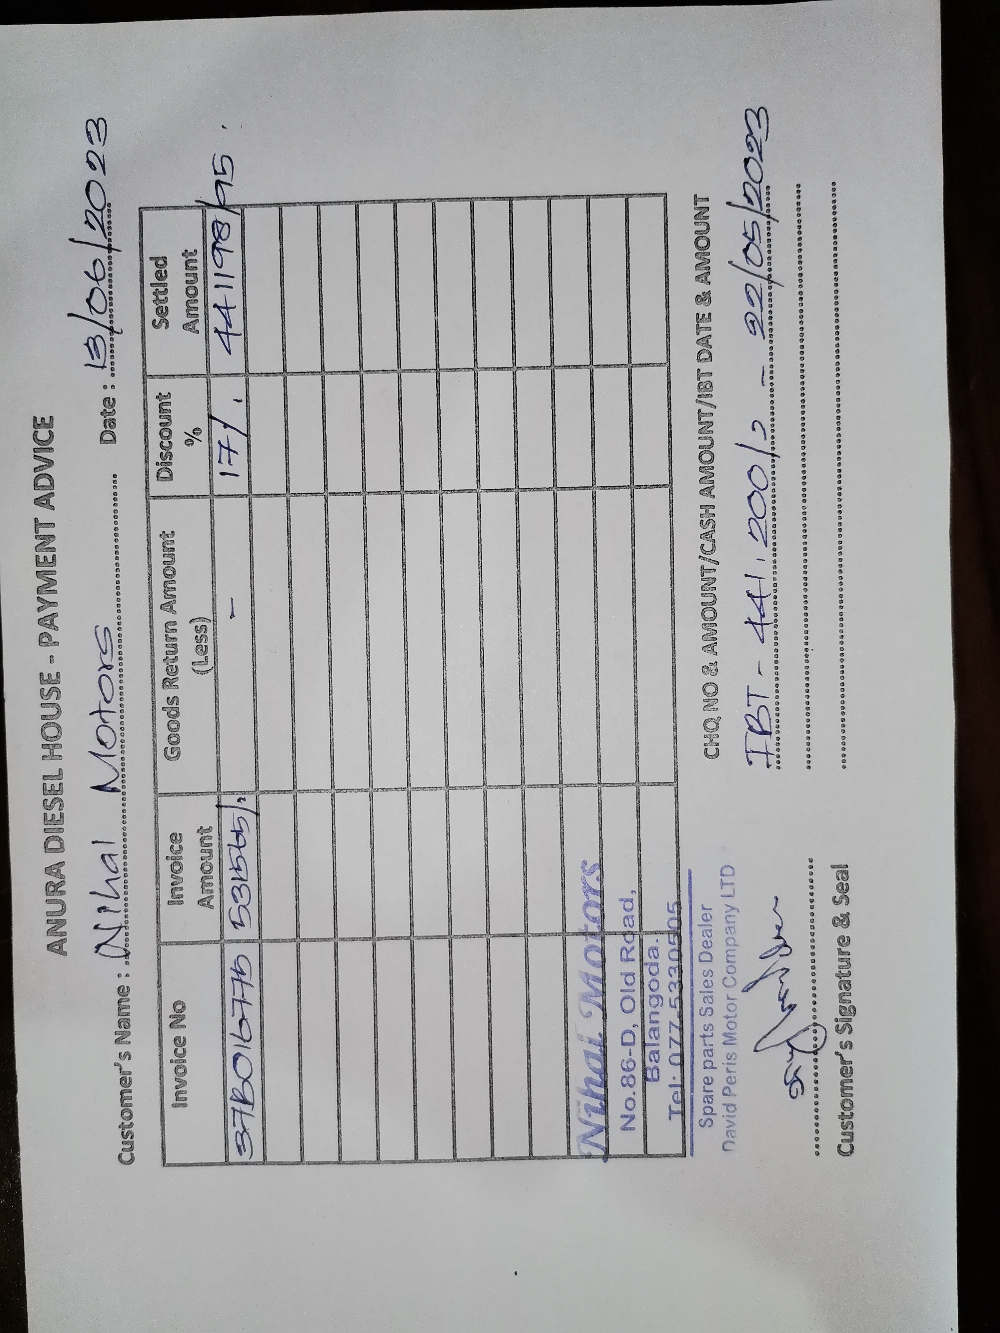 ANURA DIESEL HOUSE - PAYMENT ADVICE
Customer's Name : Nihal Motors Date : 13/06/2023
Invoice No Invoice Amount Goods Return Amount (Less) Discount % Settled Amount
37B016775 531565/- - 17% 441198/95.
Nihal Motors
No.86-D, Old Road,
Balangoda.
Tel: 077-5330505
Spare parts Sales Dealer
David Peris Motor Company LTD
Customer's Signature & Seal
CHQ NO & AMOUNT/CASH AMOUNT/IBT DATE & AMOUNT
IBT - 441,200/= - 22/05/2023